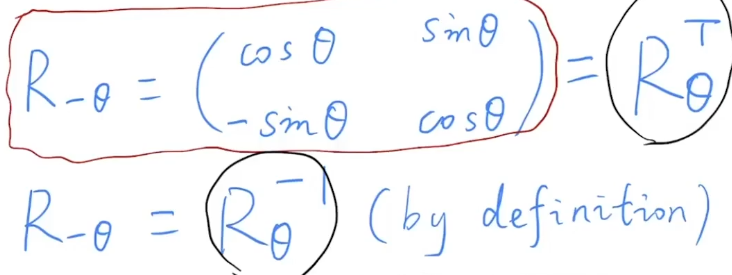 R₋θ = ( cos θ sin θ
- sin θ cos θ ) = Rθᵀ
R₋θ = Rθ⁻¹ (by definition)